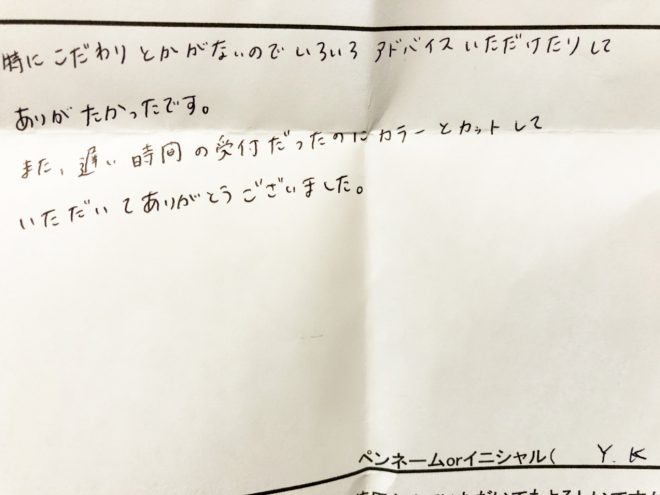 特にこだわりとかがないのでいろいろアドバイスいただけたりして
ありがたかったです。
また、遅い時間の受付だったのにカラーとカットして
いただいてありがとうございました。
ペンネームorイニシャル( Y.K